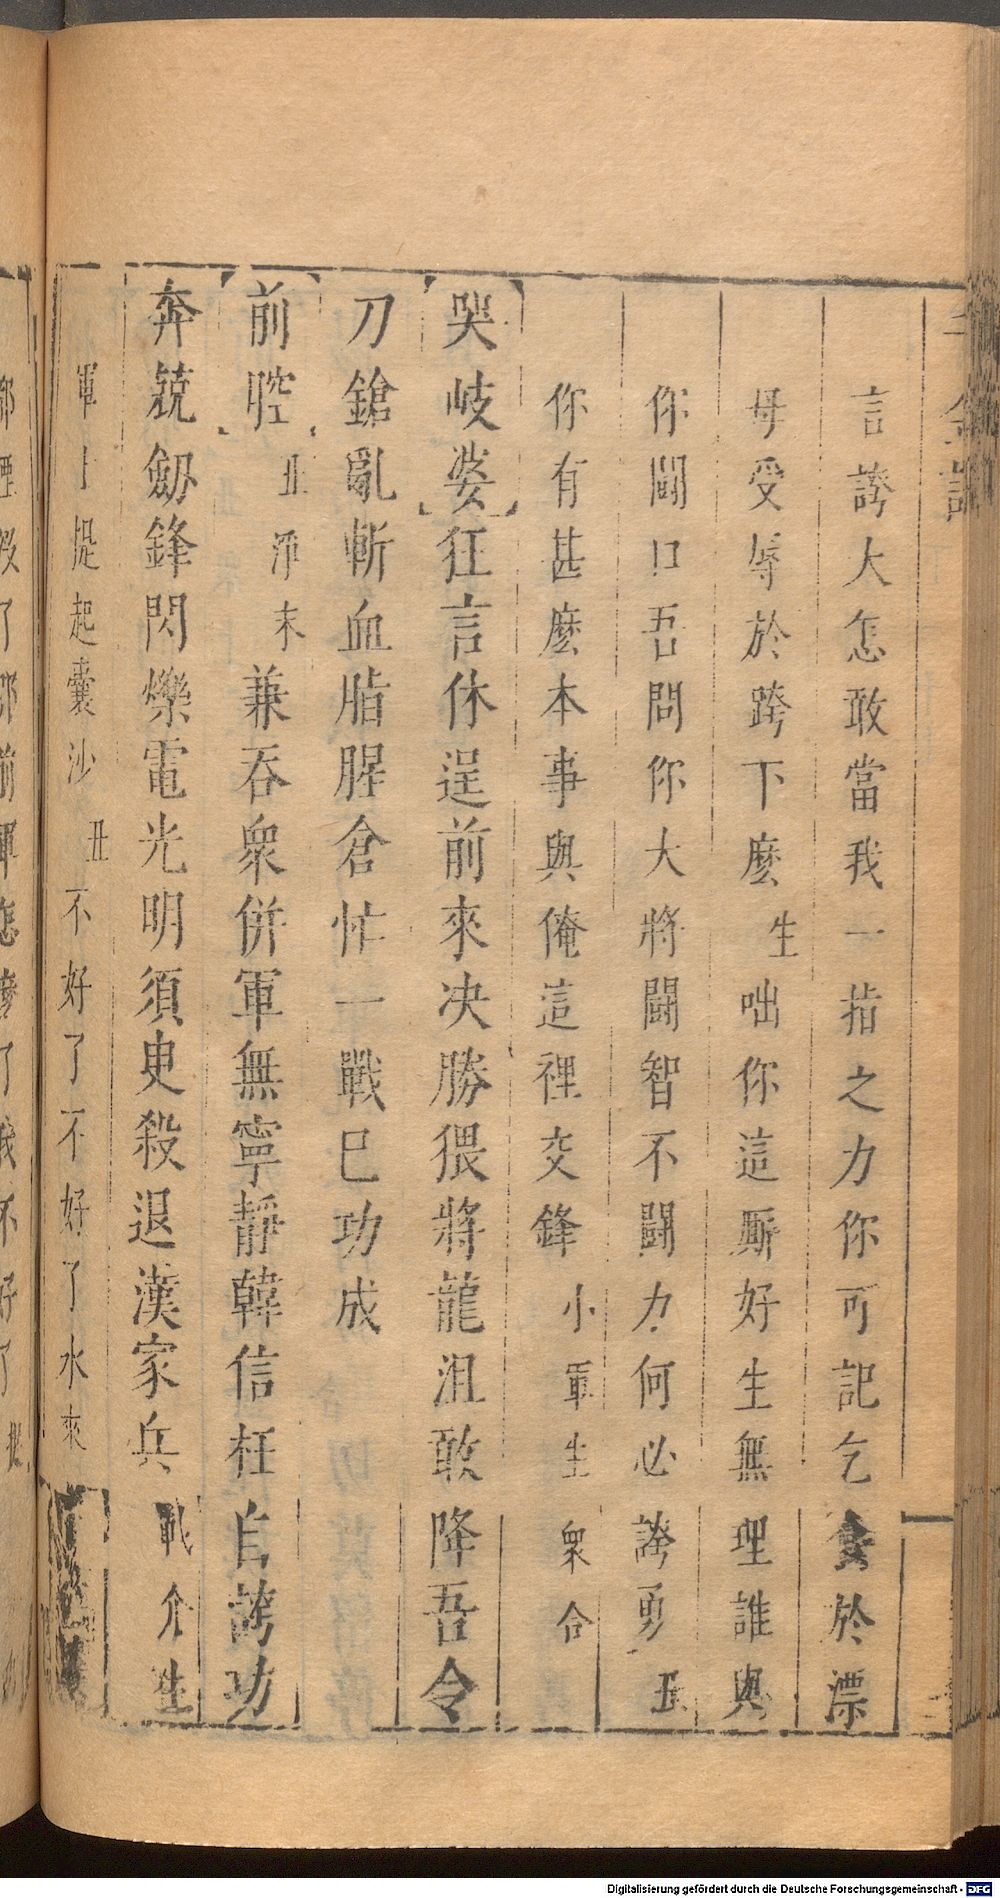 千金記
言誇大怎敢當我一指之力你可記乞食於漂
母受辱於跨下麽生咄你這厮好生無理誰與
你鬪口吾問你大將鬪智不鬪力何必誇勇丑
你有甚麽本事與俺這裡交鋒小軍生衆合
哭岐婆狂言休逞前來决勝猥將龍沮敢降吾令
刀鎗亂斬血脂腥倉忙一戰巳功成
前腔丑淨末兼吞衆併軍無寧靜韓信枉自誇功
奔競劒鋒閃爍電光明須臾殺退漢家兵戰介生
軍卜提起囊沙丑不好了不好了水來
了那前軍怎麽了我不好了
Digitalisierung gefördert durch die Deutsche Forschungsgemeinschaft - DFG